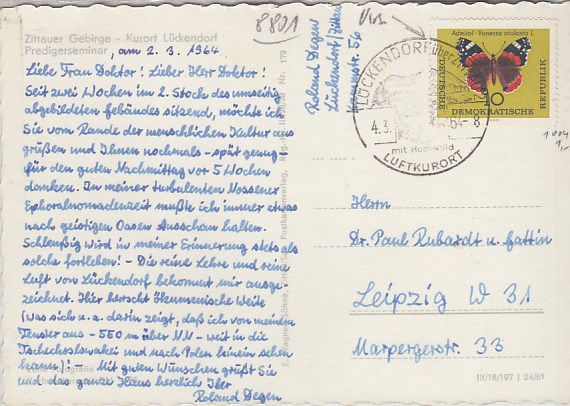 8801
Zittauer Gebirge - Kurort Lückendorf
Predigerseminar, am 2. 3. 1964
Liebe Frau Doktor! Lieber Herr Doktor!
Seit zwei Wochen im 2. Stock des umseitig
abgebildeten Gebäudes sitzend, möchte ich
Sie vom Rande der menschlichen Kultur aus
grüßen und Ihnen nochmals - spät genug -
für den guten Nachmittag vor 5 Wochen
danken. In meiner turbulenten Nossener
Ephoralnomadenzeit mußte ich immer etwas
nach geistigen Oasen Ausschau halten.
Schleußig wird in meiner Erinnerung stets als
solche fortleben! - Die reine Lehre und reine
Luft von Lückendorf bekommt mir ausge-
zeichnet. Hier herrscht ökumenische Weite
(was sich u. a. darin zeigt, daß ich von meinem
Fenster aus - 550 m über NN - weit in die
Tschechoslowakei und nach Polen hinein sehen
kann)! - Mit guten Wünschen grüßt Sie
und das ganze Haus herzlich Ihr
Roland Degen
Roland Degen
Lückendorf/Zittau
56
Nr. 179
LÜCKENDORF über
4.3.64-8
mit Hochwald
LUFTKURORT
Admiral · Vanessa atalanta L.
DEUTSCHE
DEMOKRATISCHE
REPUBLIK
10
1004
1,-
Herrn
Dr. Paul Rubardt u. Gattin
Leipzig W 31
Marpergerstr. 33
III/18/197 | 24/61